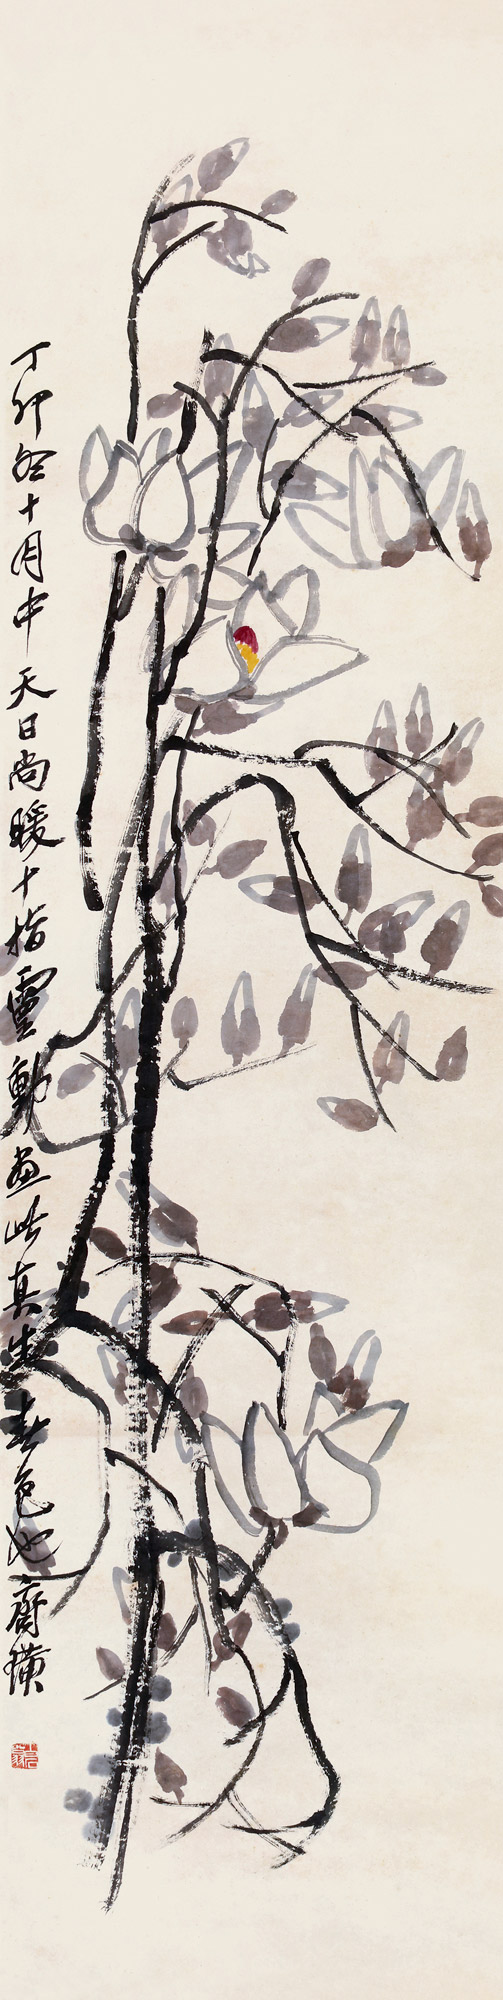 丁卯冬十月中天日尚暖十指靈動畫此真生春色也齊璜